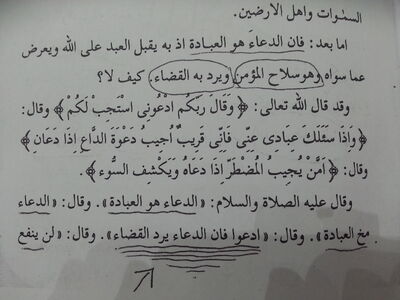 السمٰوات واهل الارضين.
اما بعد: فان الدعاءَ هو العبادة اذ به يقبل العبد على الله ويعرض
عما سواه وهو سلاح المؤمن ويرد به القضاء. كيف لا؟
وقد قال الله تعالى: ﴿وَقَالَ رَبُّكُم ادْعُونِى اَسْتَجِبْ لَكُمْ﴾ وقال:
﴿وَإِذَا سَئَلَكَ عِبَادِى عَنّى فَإِنِّى قَرِيبٌ أُجِيبُ دَعْوَةَ الدَّاعِ إِذَا دَعَانِ﴾
وقال: ﴿أمَّنْ يُجِيبُ المُضْطَرَّ إِذَا دَعَاهُ وَيَكْشِف السُّوءَ﴾.
وقال عليه الصلاة والسلام: «الدعاء هو العبادة». وقال: «الدعاء
مخ العبادة». وقال: «ادعوا فان الدعاء يرد القضاء». وقال: «لن ينفع